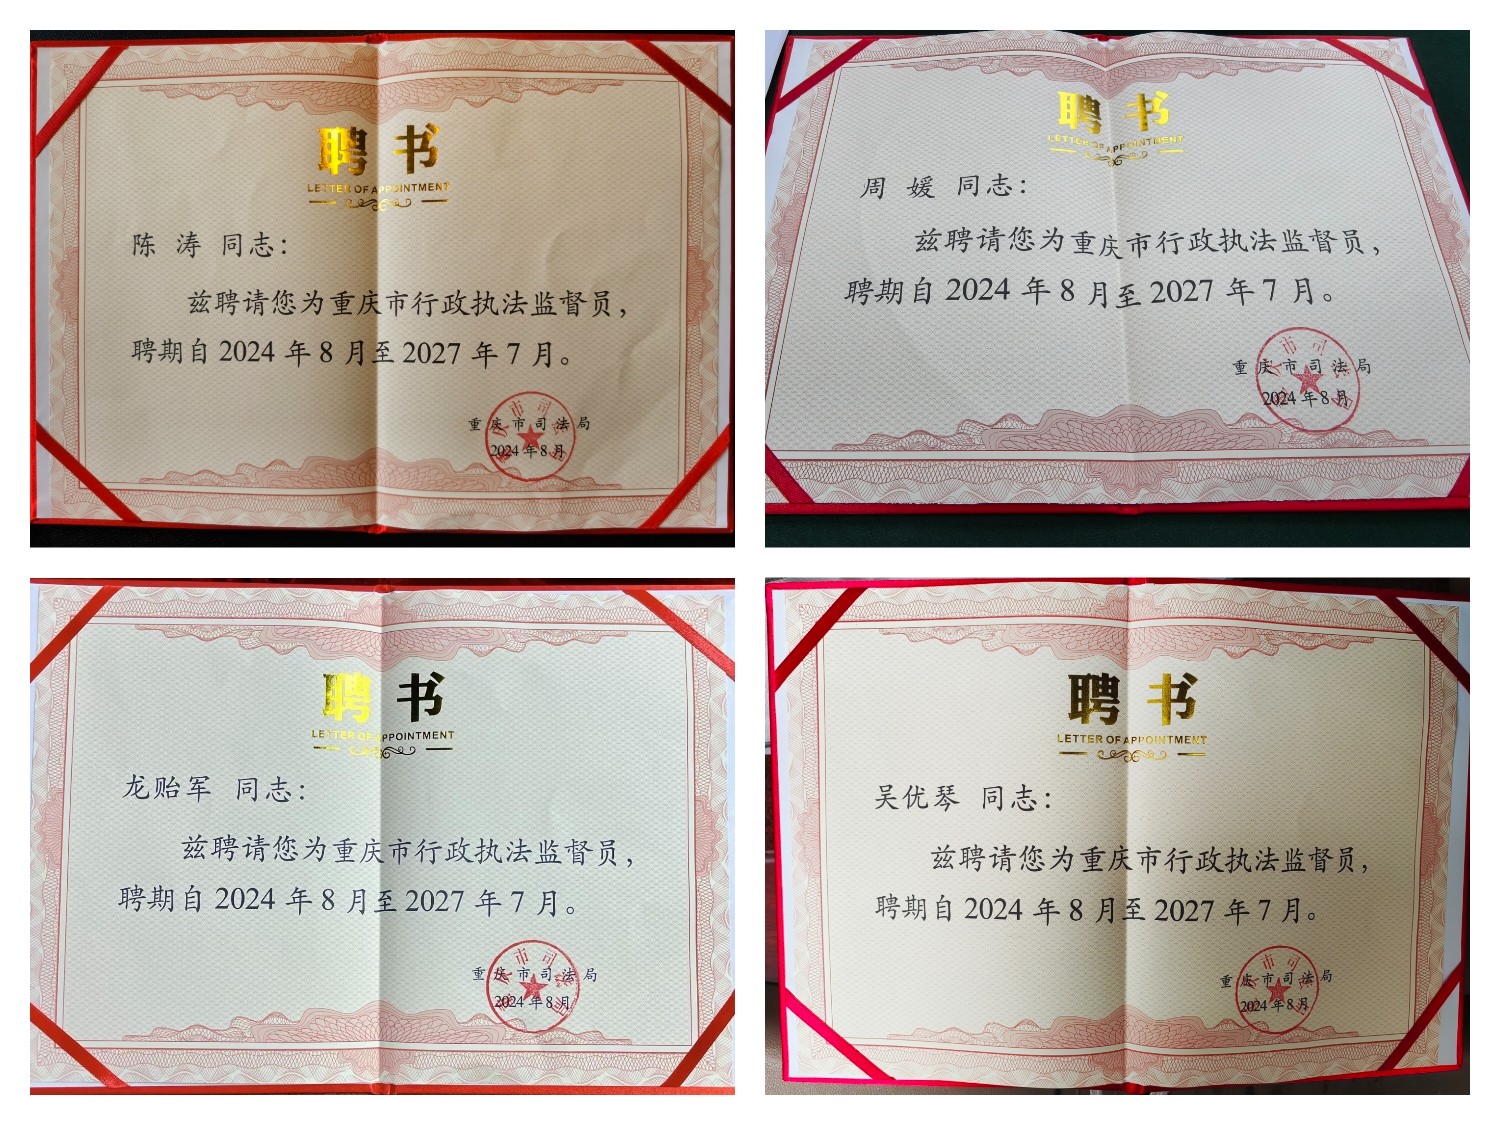 聘书
LETTER OF APPOINTMENT
陈 涛 同志：
兹聘请您为重庆市行政执法监督员，
聘期自 2024 年 8 月至 2027 年 7 月。
重庆市司法局
2024 年 8 月
聘书
LETTER OF APPOINTMENT
周 媛 同志：
兹聘请您为重庆市行政执法监督员，
聘期自 2024 年 8 月至 2027 年 7 月。
重庆市司法局
2024 年 8 月
聘书
LETTER OF APPOINTMENT
龙贻军 同志：
兹聘请您为重庆市行政执法监督员，
聘期自 2024 年 8 月至 2027 年 7 月。
重庆市司法局
2024 年 8 月
聘书
LETTER OF APPOINTMENT
吴优琴 同志：
兹聘请您为重庆市行政执法监督员，
聘期自 2024 年 8 月至 2027 年 7 月。
重庆市司法局
2024 年 8 月